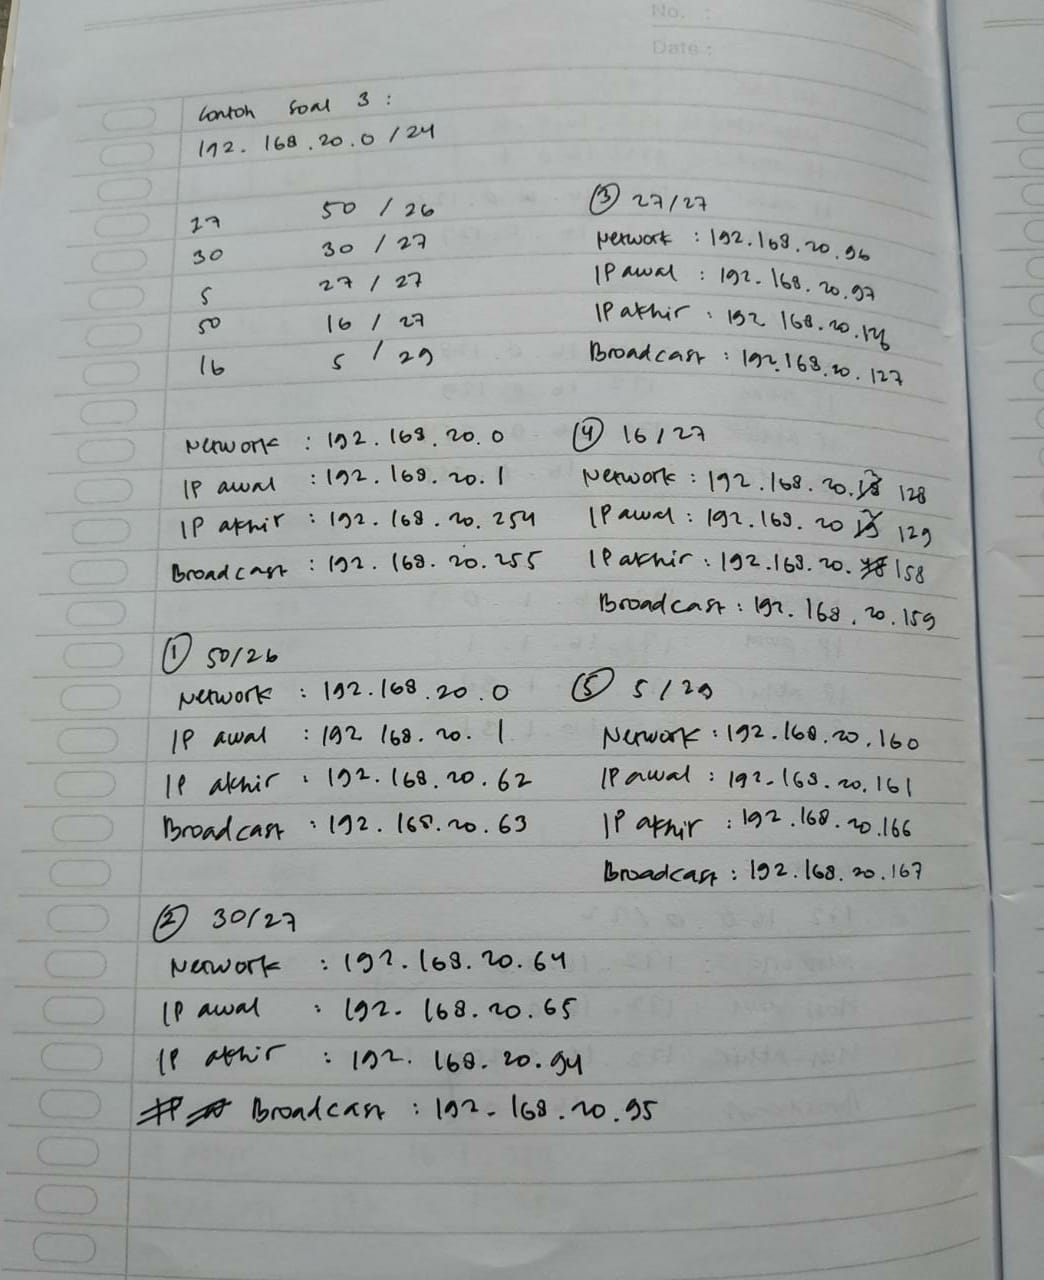 No. :
Date :
Contoh Soal 3 :
192. 168. 20. 0 / 24
27
30
5
50
16
50 / 26
30 / 27
27 / 27
16 / 27
5 / 29
Network : 192. 168. 20. 0
IP awal : 192. 168. 20. 1
IP akhir : 192. 168. 20. 254
Broadcast : 192. 168. 20. 255
① 50/26
Network : 192. 168. 20. 0
IP awal : 192 168. 20. 1
IP akhir : 192. 168. 20. 62
Broadcast : 192. 168. 20. 63
② 30/27
Network : 192. 168. 20. 64
IP awal : 192. 168. 20. 65
IP akhir : 192. 168. 20. 94
Broadcast : 192. 168. 20. 95
③ 27/27
Network : 192. 168. 20. 96
IP awal : 192. 168. 20. 97
IP akhir : 192 168. 20. 126
Broadcast : 192. 168. 20. 127
④ 16/27
Network : 192. 168. 20. 128
IP awal : 192. 168. 20 129
IP akhir : 192. 168. 20. 158
Broadcast : 192. 168. 20. 159
⑤ 5/29
Network : 192. 168. 20. 160
IP awal : 192. 168. 20. 161
IP akhir : 192. 168. 20. 166
Broadcast : 192. 168. 20. 167